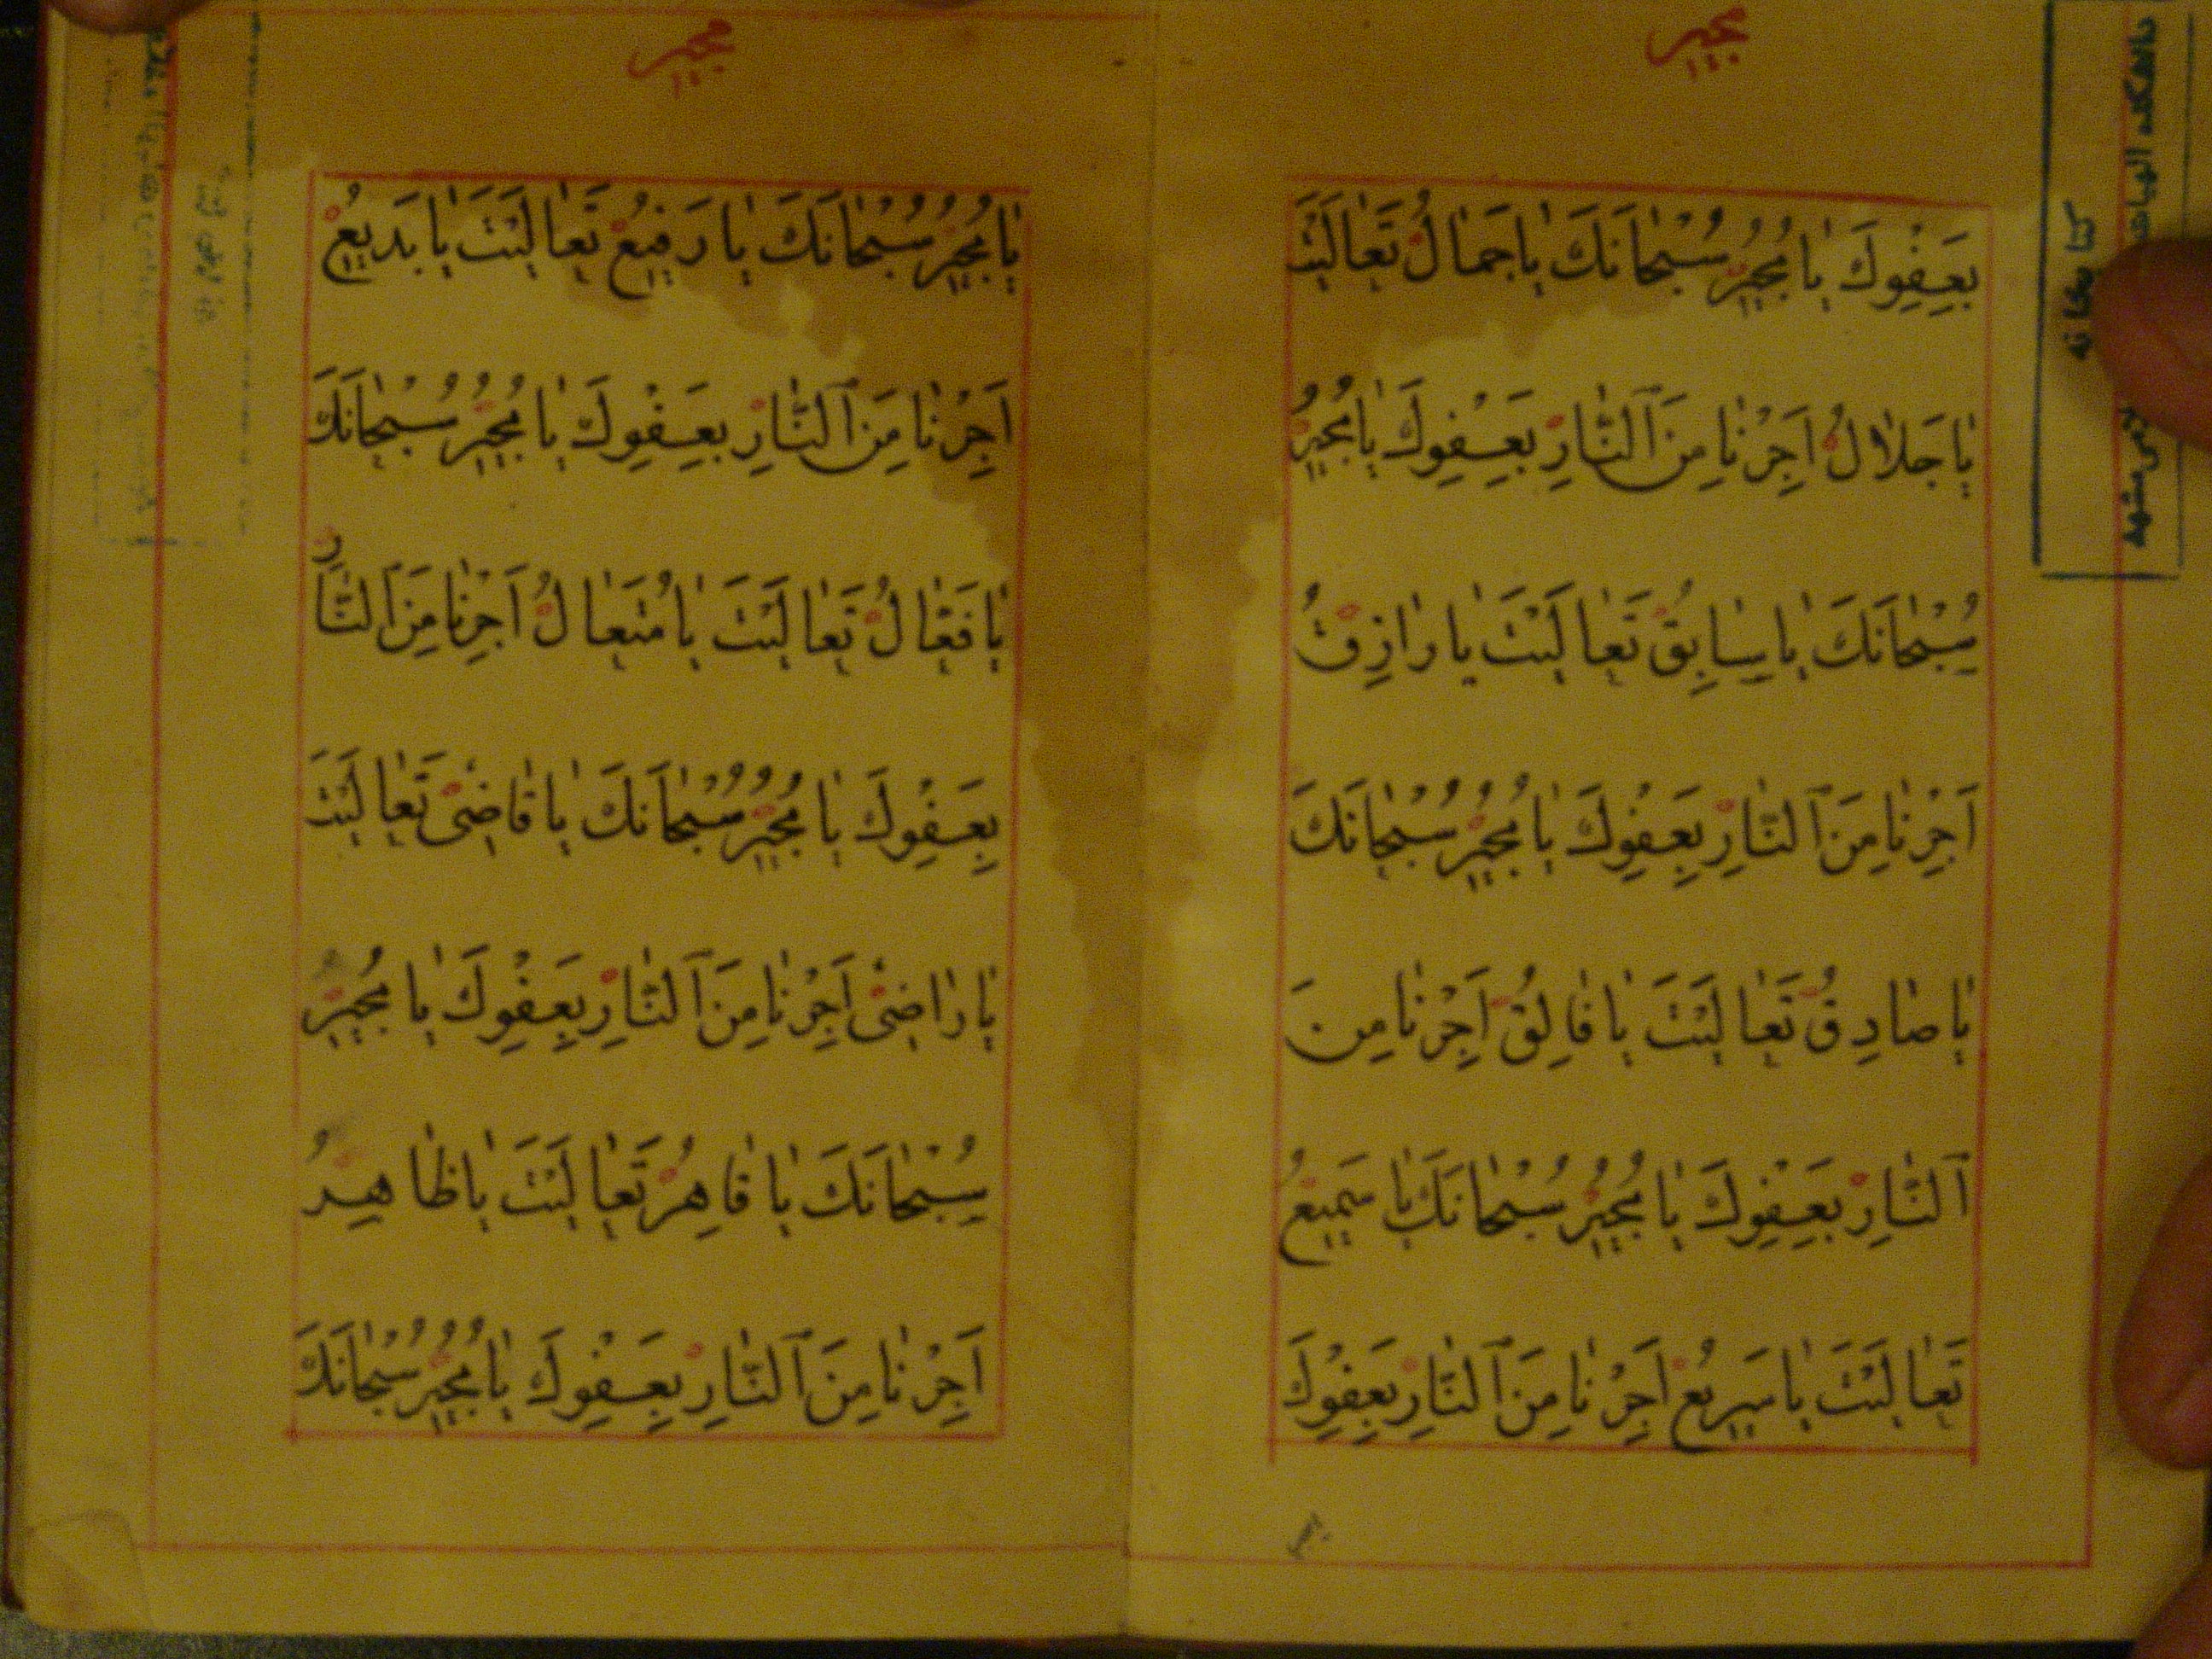 مجیر
بِعَفْوِكَ يا مُجيرُ سُبْحانَكَ يا جَمالُ تَعالَيْتَ
يا جَلالُ اَجِرْنا مِنَ النّارِ بِعَفْوِكَ يا مُجيرُ
سُبْحانَكَ يا سابِقُ تَعالَيْتَ يا رازِقُ
اَجِرْنا مِنَ النّارِ بِعَفْوِكَ يا مُجيرُ سُبْحانَكَ
يا صادِقُ تَعالَيْتَ يا فالِقُ اَجِرْنا مِنَ
النّارِ بِعَفْوِكَ يا مُجيرُ سُبْحانَكَ يا سَميعُ
تَعالَيْتَ يا سَريعُ اَجِرْنا مِنَ النّارِ بِعَفْوِكَ
يا
مجیر
يا مُجيرُ سُبْحانَكَ يا رَفيعُ تَعالَيْتَ يا بَديعُ
اَجِرْنا مِنَ النّارِ بِعَفْوِكَ يا مُجيرُ سُبْحانَكَ
يا فَعّالُ تَعالَيْتَ يا مُتَعالُ اَجِرْنا مِنَ النّارِ
بِعَفْوِكَ يا مُجيرُ سُبْحانَكَ يا قاضي تَعالَيْتَ
يا راضي اَجِرْنا مِنَ النّارِ بِعَفْوِكَ يا مُجيرُ
سُبْحانَكَ يا قاهِرُ تَعالَيْتَ يا ظاهِرُ
اَجِرْنا مِنَ النّارِ بِعَفْوِكَ يا مُجيرُ سُبْحانَكَ
كتابخانه
دانشكده الهيات مشهد